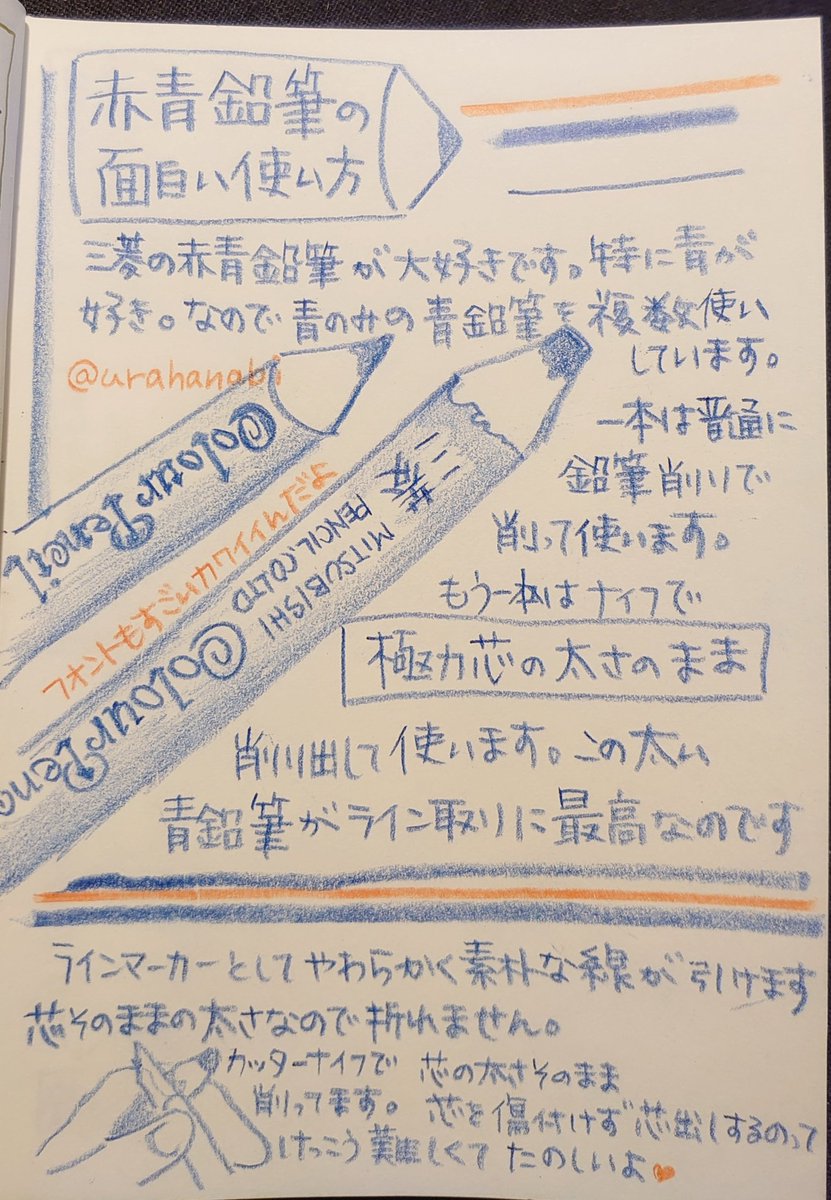 赤青鉛筆の
面白い使い方
三菱の赤青鉛筆が大好きです。特に青が
好き。なので青のみの青鉛筆を複数使い
しています。
@urahanabi
一本は普通に
鉛筆削りで
削って使います。
もう一本はナイフで
極力芯の太さのまま
削り出して使います。この太い
青鉛筆がライン取りに最高なのです
Colour Pencil
フォントもすごいカワイイんだよ
三菱
MITSUBISHI
PENCIL.CO.LTD
Colour Penc
ラインマーカーとしてやわらかく素朴な線が引けます
芯そのままの太さなので折れません。
カッターナイフで
削ってます。
芯の太さそのまま
芯を傷付けず芯出しするのって
けっこう難しくてたのしいよ